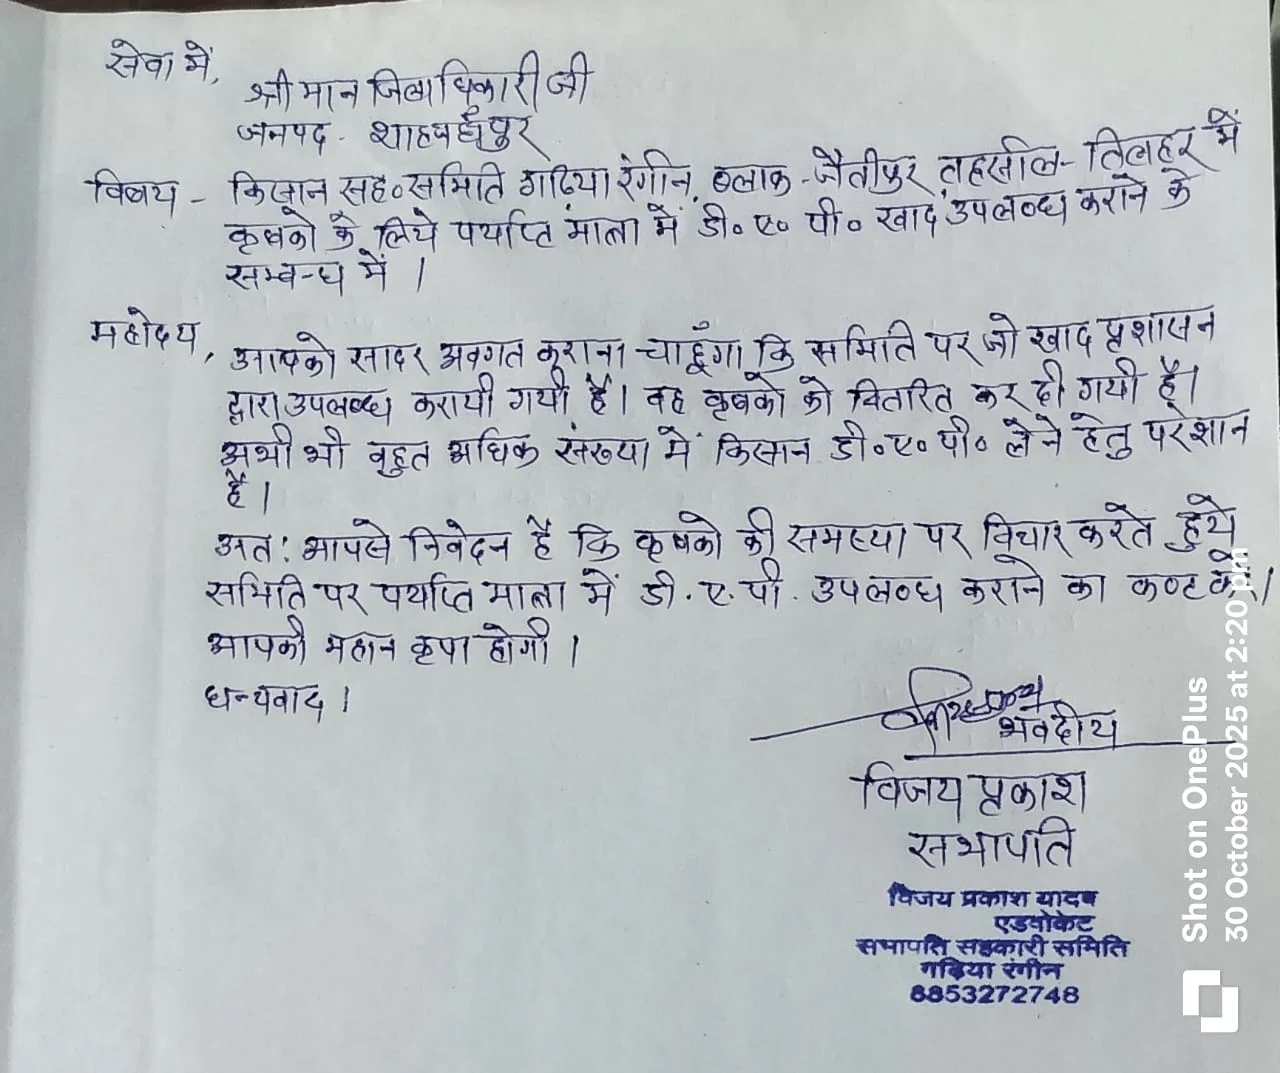 सेवा में,
श्री मान जिलाधिकारी जी
जनपद - शाहजहाँपुर
विषय - किसान सह० समिति गढिया रंगीन, ब्लाक - जैतीपुर तहसील - तिलहर में
कृषको के लिये पर्याप्त मात्ना में डी० ए० पी० खाद उपलब्ध कराने के
सम्बन्ध में ।
महोदय,
आपको सादर अवगत कराना चाहूँगा कि समिति पर जो खाद प्रशासन
द्वारा उपलब्ध करायी गयी है। वह कृषको को वितरित कर दी गयी है।
अभी भी बहुत अधिक संख्या में किसान डी० ए० पी० लेने हेतु परेशान
है ।
अत: आपसे निवेदन है कि कृषको की समस्या पर विचार करते हुये
समिति पर पर्याप्त मात्ना में डी. ए. पी. उपलब्ध कराने का कष्ट करें ।
आपकी महान कृपा होगी ।
धन्यवाद ।
भवदीय
विजय प्रकाश
सभापति
विजय प्रकाश यादव
एडवोकेट
सभापति सहकारी समिति
गढ़िया रंगीन
8853272748
Shot on OnePlus
30 October 2025 at 2:20 pm